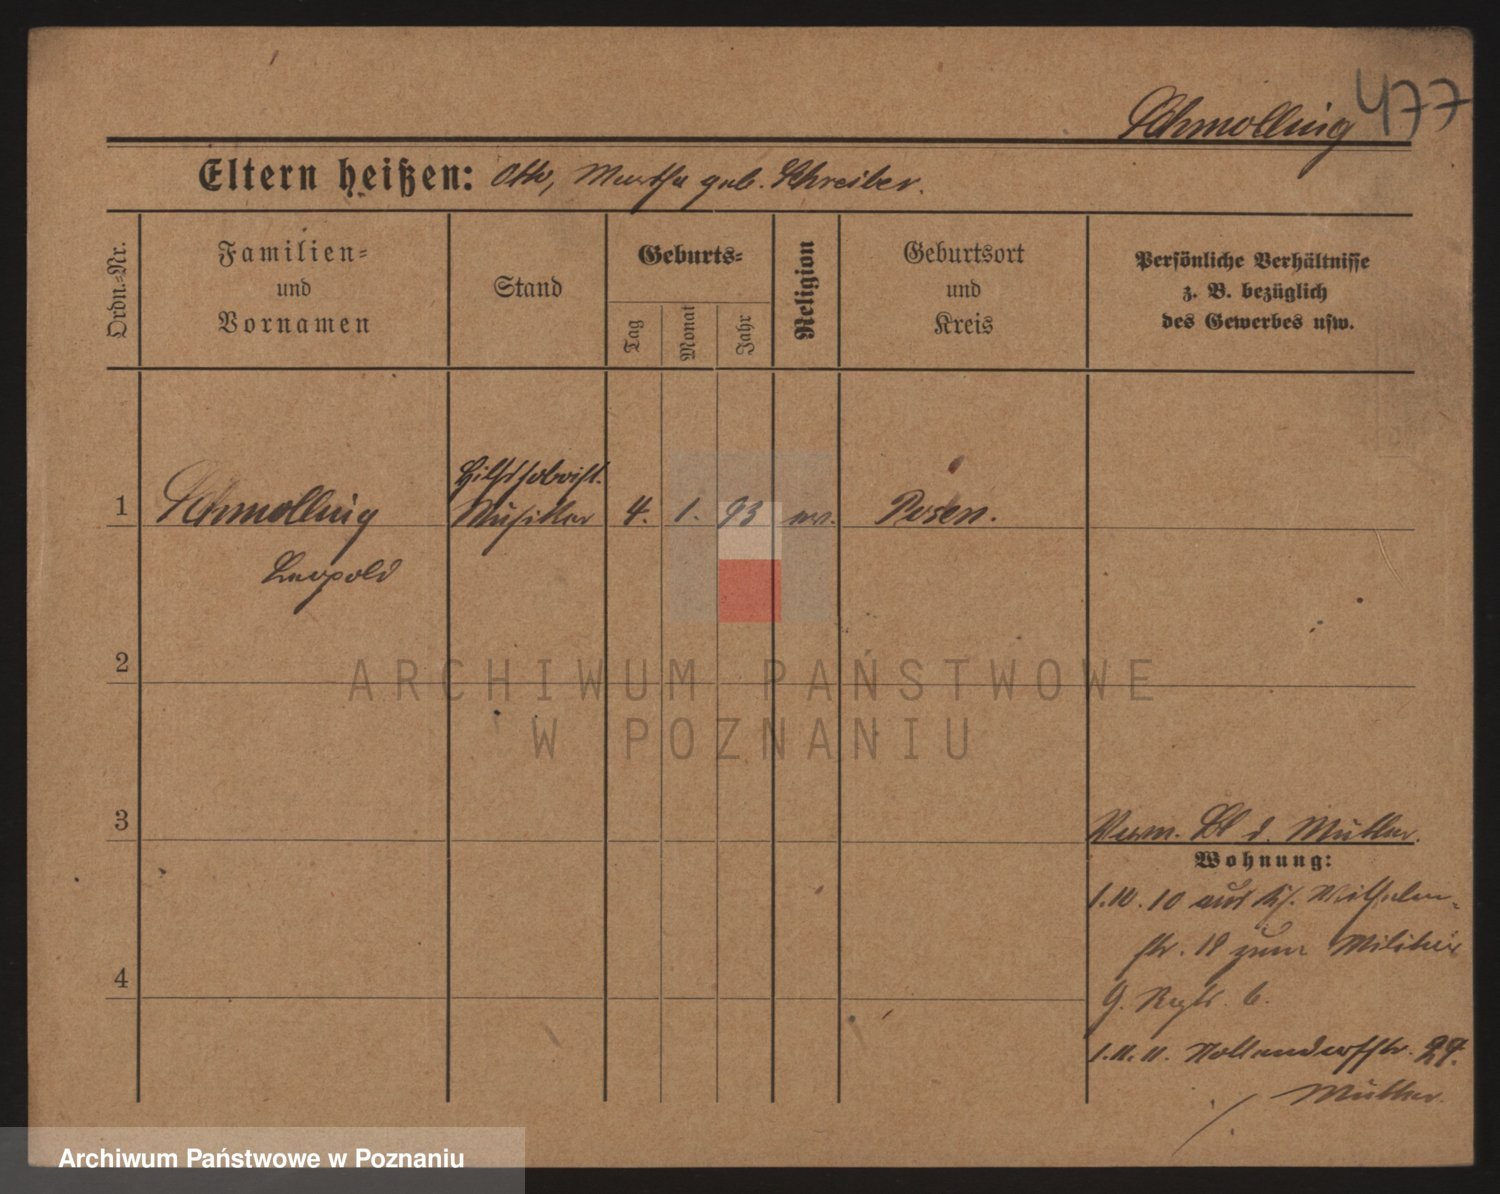 Schmolling 477
Eltern heißen: Otto, Martha geb. Schreiber.
Ordn.-Nr.
Familien-
und
Vornamen
Stand
Geburts-
Tag
Monat
Jahr
Religion
Geburtsort
und
Kreis
Persönliche Verhältnisse
z. B. bezüglich
des Gewerbes usw.
1 Schmolling Musiker 4. 1. 93 ev. Posen.
Leopold
2
ARCHIWUM PAŃSTWOWE
W POZNANIU
3
d. Mutter.
Wohnung:
1.10.10 aus Wilhelm-
str. 18 zum Militär
G. Regts. 6.
1.11.11. Nollendorfstr. 27.
Mutter.
4
Archiwum Państwowe w Poznaniu